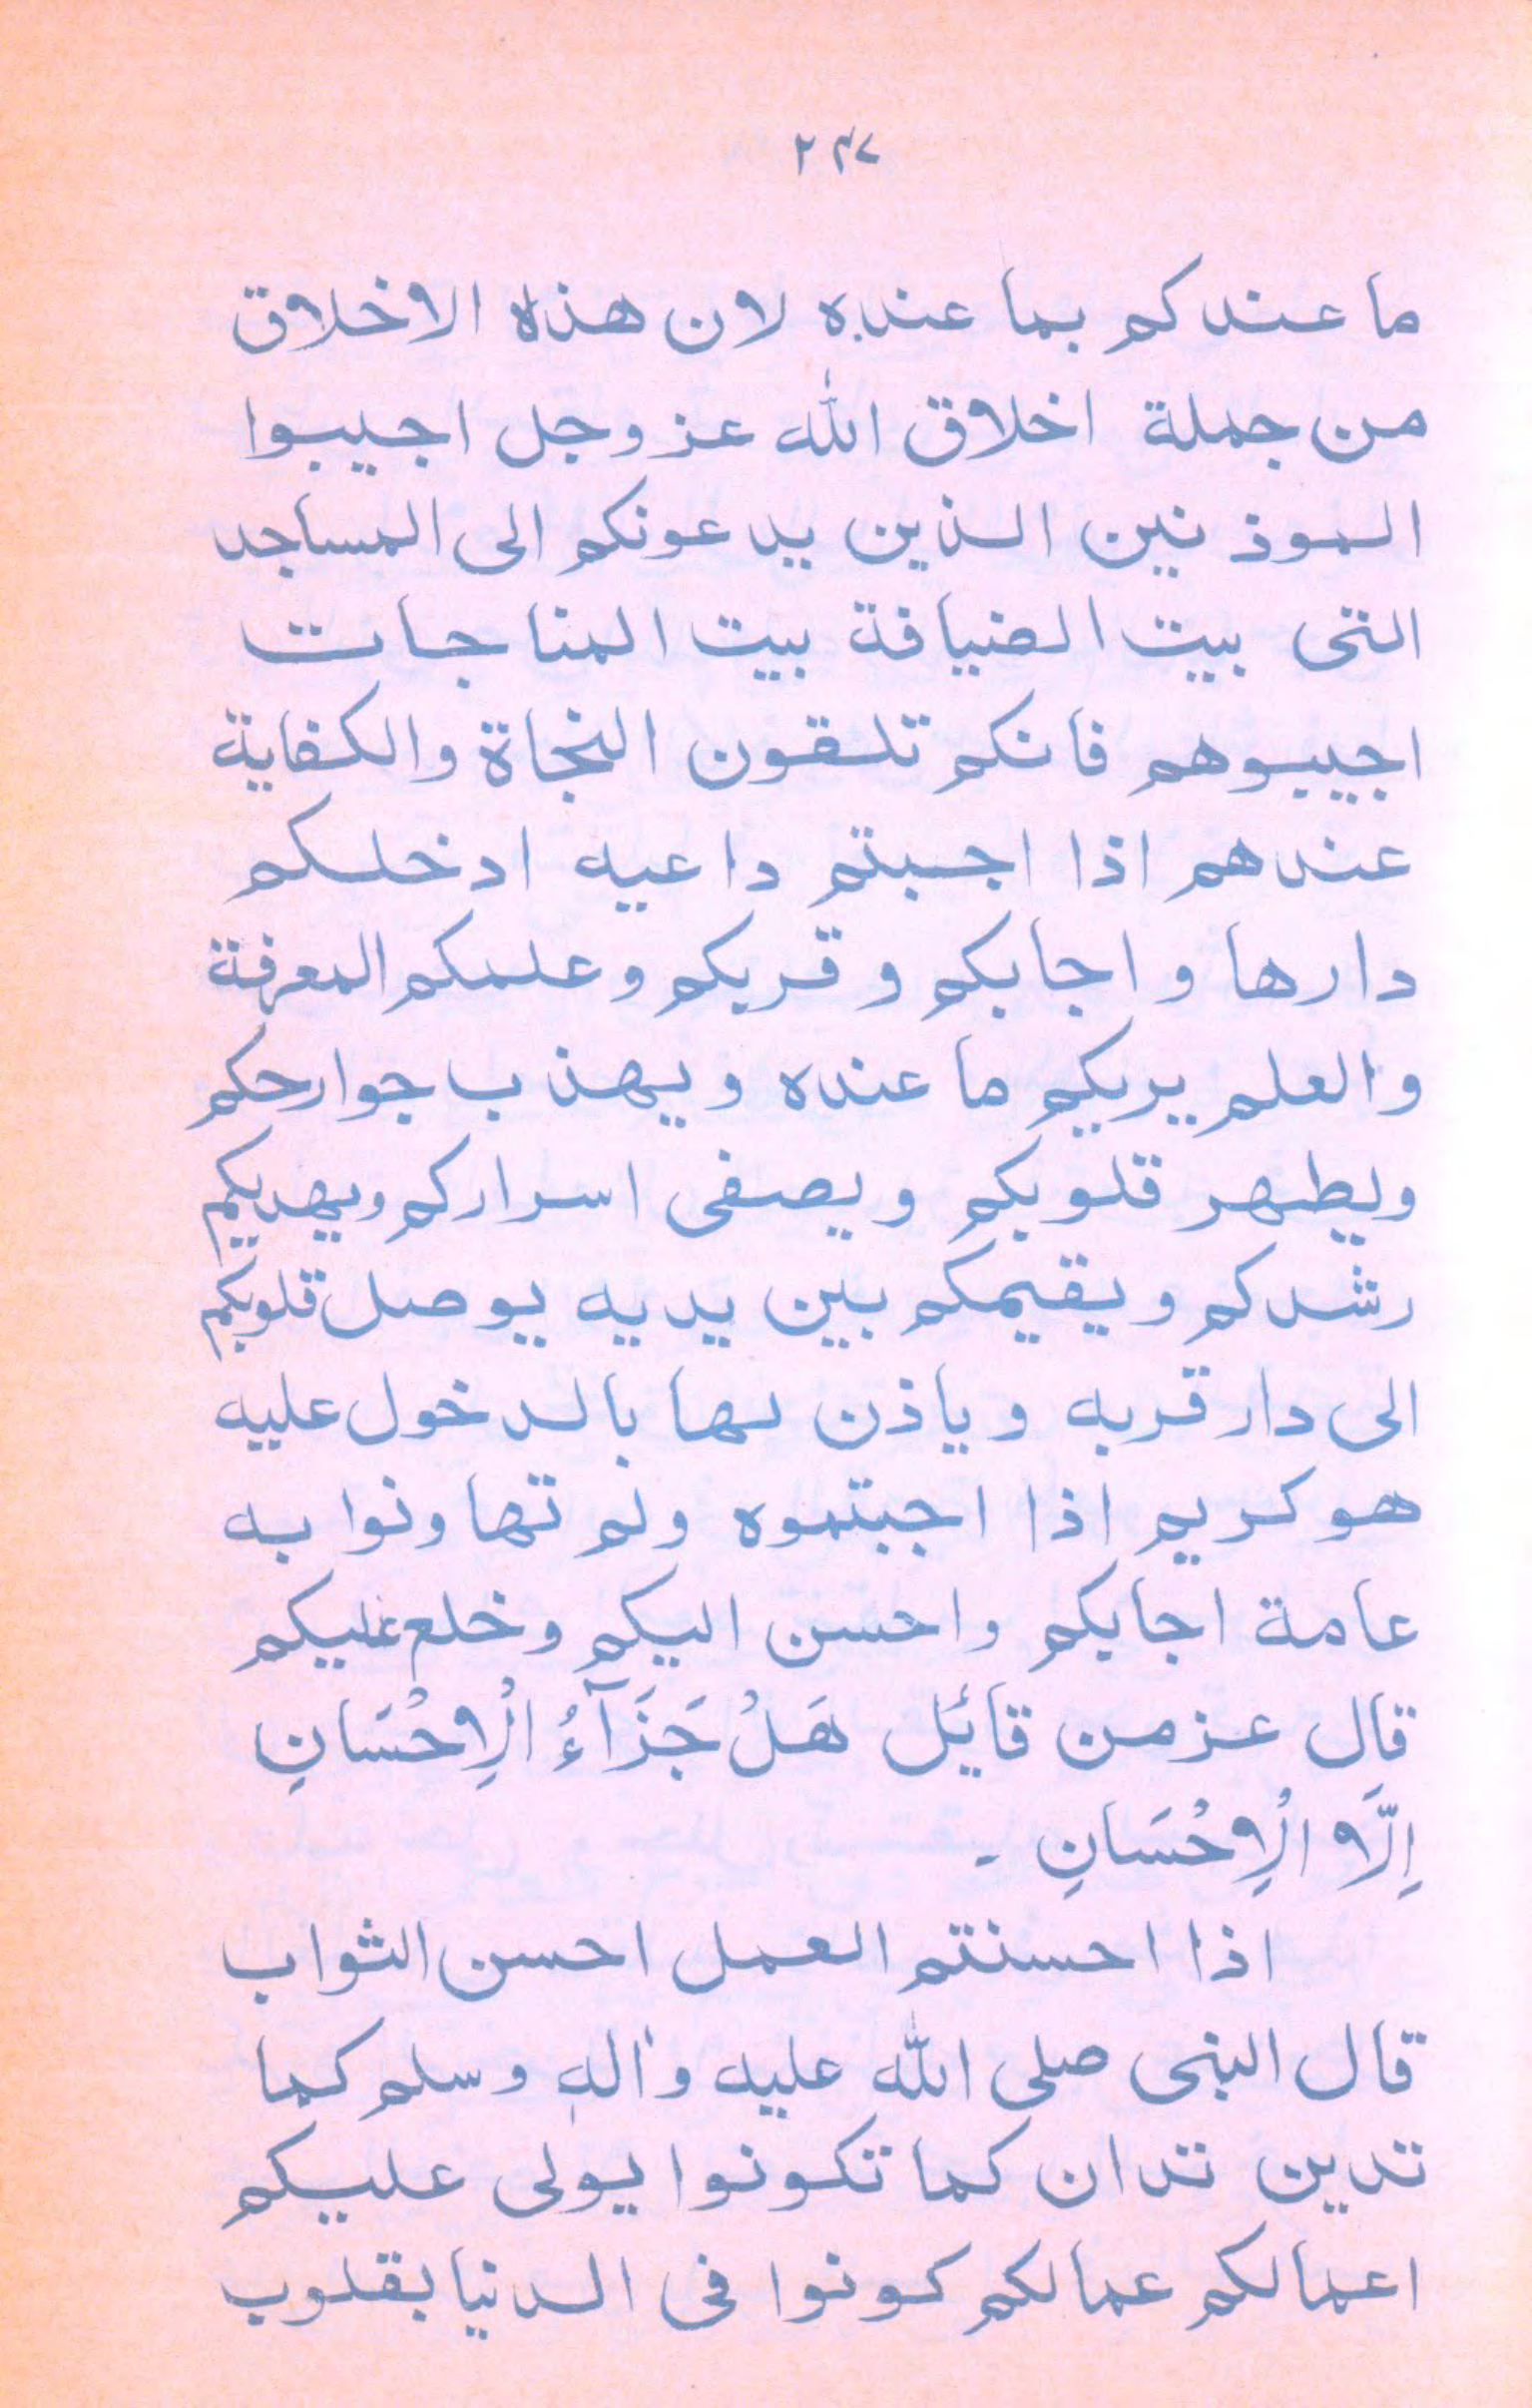 ۲۴۷
ما عندكم بما عنده لان هذه الاخلاق
من جملة اخلاق الله عز وجل اجيبوا
الموذنين الذين يدعونكم الى المساجد
التى بيت الضيافة بيت المناجات
اجيبوهم فانكم تلقون النجاة والكفاية
عندهم اذا اجبتم داعيه ادخلكم
دارها واجابكم وقربكم وعلمكم المعرفة
والعلم يريكم ما عنده ويهذب جوارحكم
ويطهر قلوبكم ويصفى اسراركم ويهديكم
رشدكم ويقيمكم بين يديه يوصل قلوبكم
الى دار قربه وياذن لها بالدخول عليه
هو كريم اذا اجبتموه ولم تهاونوا به
عامة اجابكم واحسن اليكم وخلع عليكم
قال عز من قائل هَلْ جَزَآءُ الْاِحْسَانِ
اِلَّا الْاِحْسَانِ -
اذا احسنتم العمل احسن الثواب
قال النبى صلى الله عليه واله وسلم كما
تدين تدان كما تكونوا يولى عليكم
اعمالكم عمالكم كونوا فى الدنيا بقلوب